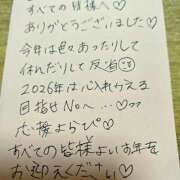 すべての皆様へ♡
ありがとうございました♡
今年は色々あったりして
休んだりして反省
2026年は心入れかえる
目指せNo…♡♡
応援よろぴ♡
すべての皆様よいお年を
お迎えください♡